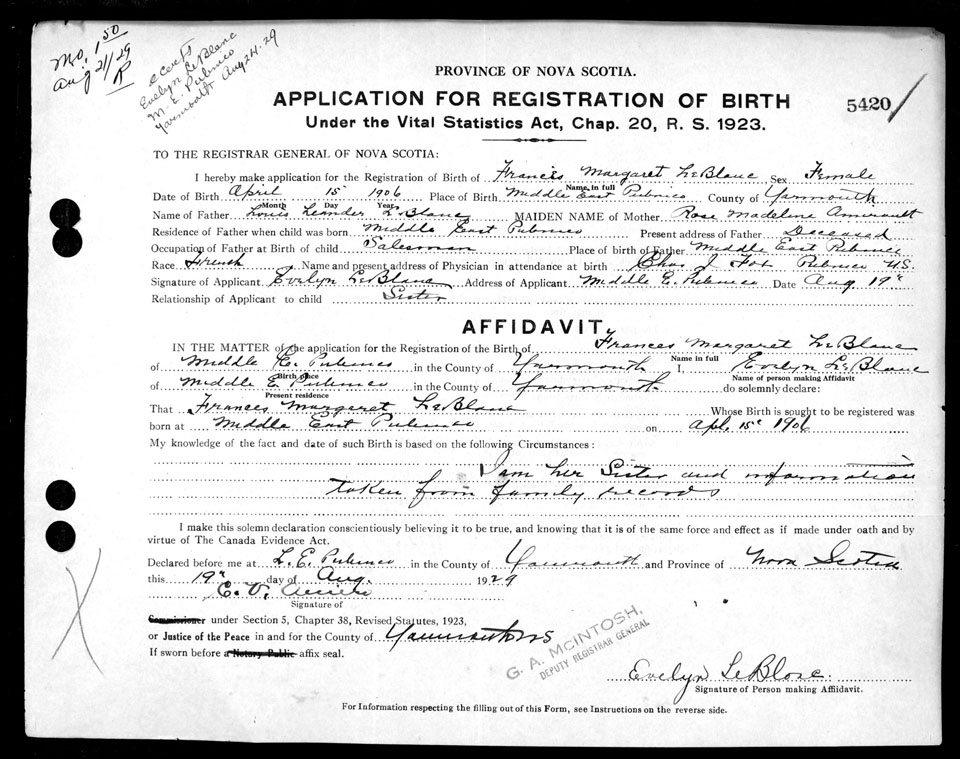 M.O. 1.50
Aug 21/29
R
2 Certs
Evelyn LeBlanc
M. E. Pubnico
Yarmouth Aug 24.29
PROVINCE OF NOVA SCOTIA.
APPLICATION FOR REGISTRATION OF BIRTH
5420
Under the Vital Statistics Act, Chap. 20, R. S. 1923.
TO THE REGISTRAR GENERAL OF NOVA SCOTIA:
I hereby make application for the Registration of Birth of Francis Margaret LeBlanc Sex Female
Name in full
Date of Birth April 15 1906 Place of Birth Middle East Pubnico County of Yarmouth
Month Day Year
Name of Father Louis Leander LeBlanc MAIDEN NAME of Mother Rose Madeline Amirault
Residence of Father when child was born Middle East Pubnico Present address of Father Deceased
Occupation of Father at Birth of child Salesman Place of birth of Father Middle East Pubnico
Race French Name and present address of Physician in attendance at birth Chas J Fox Pubnico N.S.
Signature of Applicant Evelyn LeBlanc Address of Applicant Middle E. Pubnico Date Aug 19th
Relationship of Applicant to child Sister
AFFIDAVIT.
IN THE MATTER of the application for the Registration of the Birth of Frances Margaret LeBlanc
Name in full
of Middle E. Pubnico in the County of Yarmouth I, Evelyn LeBlanc
Birth place Name of person making Affidavit
of Middle E Pubnico in the County of Yarmouth do solemnly declare:
Present residence
That Frances Margaret LeBlanc Whose Birth is sought to be registered was
born at Middle East Pubnico on Apl. 15th 1906
My knowledge of the fact and date of such Birth is based on the following Circumstances:
I am her Sister and information
taken from family records
I make this solemn declaration conscientiously believing it to be true, and knowing that it is of the same force and effect as if made under oath and by
virtue of The Canada Evidence Act.
Declared before me at L. E. Pubnico in the County of Yarmouth and Province of Nova Scotia
this 19th day of Aug. 1929
E. V.
Signature of
Commissioner under Section 5, Chapter 38, Revised Statutes, 1923,
or Justice of the Peace in and for the County of Yarmouth NS
If sworn before a Notary Public affix seal.
G. A. McINTOSH,
DEPUTY REGISTRAR GENERAL
Evelyn LeBlanc
Signature of Person making Affidavit.
For Information respecting the filling out of this Form, see Instructions on the reverse side.